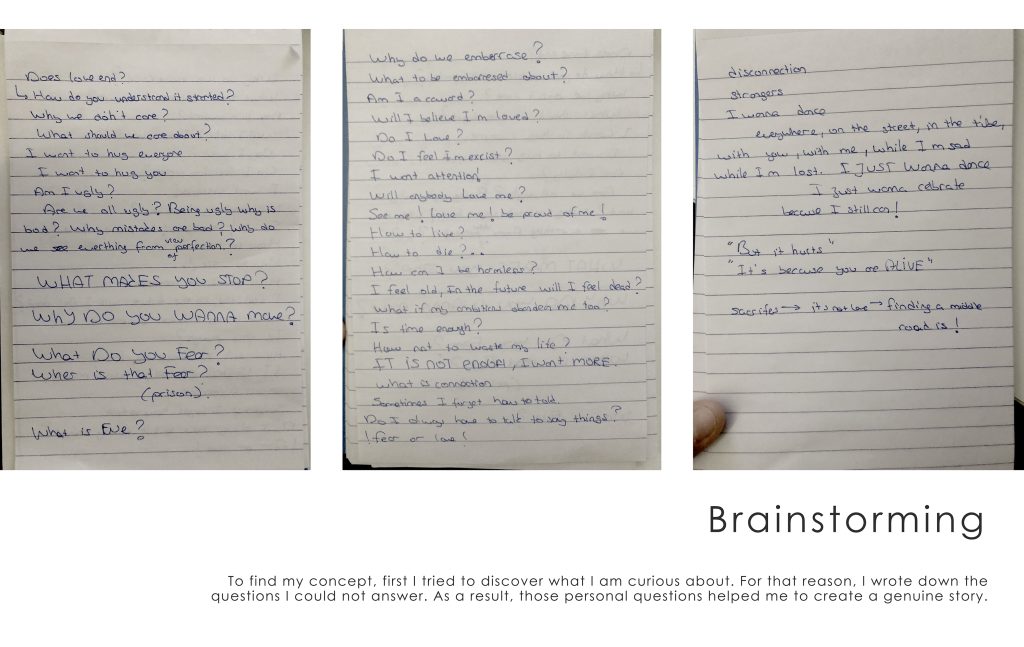 Does love end?
↳ How do you understand it started?
Why we don't care?
What should we care about?
I want to hug everyone
I want to hug you
Am I ugly?
Are we all ugly? Being ugly why is
bad? Why mistakes are bad? Why do
we see everthing from view of perfection?
WHAT MAKES YOU STOP?
WhY DO YOU WANNA move?
What Do You Fear?
Wher is that Fear?
(prison).
What is Eve?
Why do we emberrase?
What to be embarresed about?
Am I a coward?
Will I believe I'm loved?
Do I Love?
Do I feel Im excist?
I want attention!
Will anybody Love me?
See me! Love me! be proud of me!
How to live?
How to die?..
How can I be harmless?
I feel old, In the future will I feel dead?
What if my ambition abonden me too?
Is time enough?
How not to waste my life?
IT IS NOT ENOUGH, I want MORE.
What is connection
Sometimes I forget how to told.
Do I always have to talk to say things?
! fear or love!
disconnection
strangers
I wanna dance
everywhere, on the street, in the tube,
with you, with me, while I'm sad
while I'm lost. I JUST Wanna dance
I Just wanna celbrate
because I still can!
"But it hurts"
"It's because you are ALIVE"
sacrifes → it's not love → finding a middle
road is!
Brainstorming
To find my concept, first I tried to discover what I am curious about. For that reason, I wrote down the
questions I could not answer. As a result, those personal questions helped me to create a genuine story.